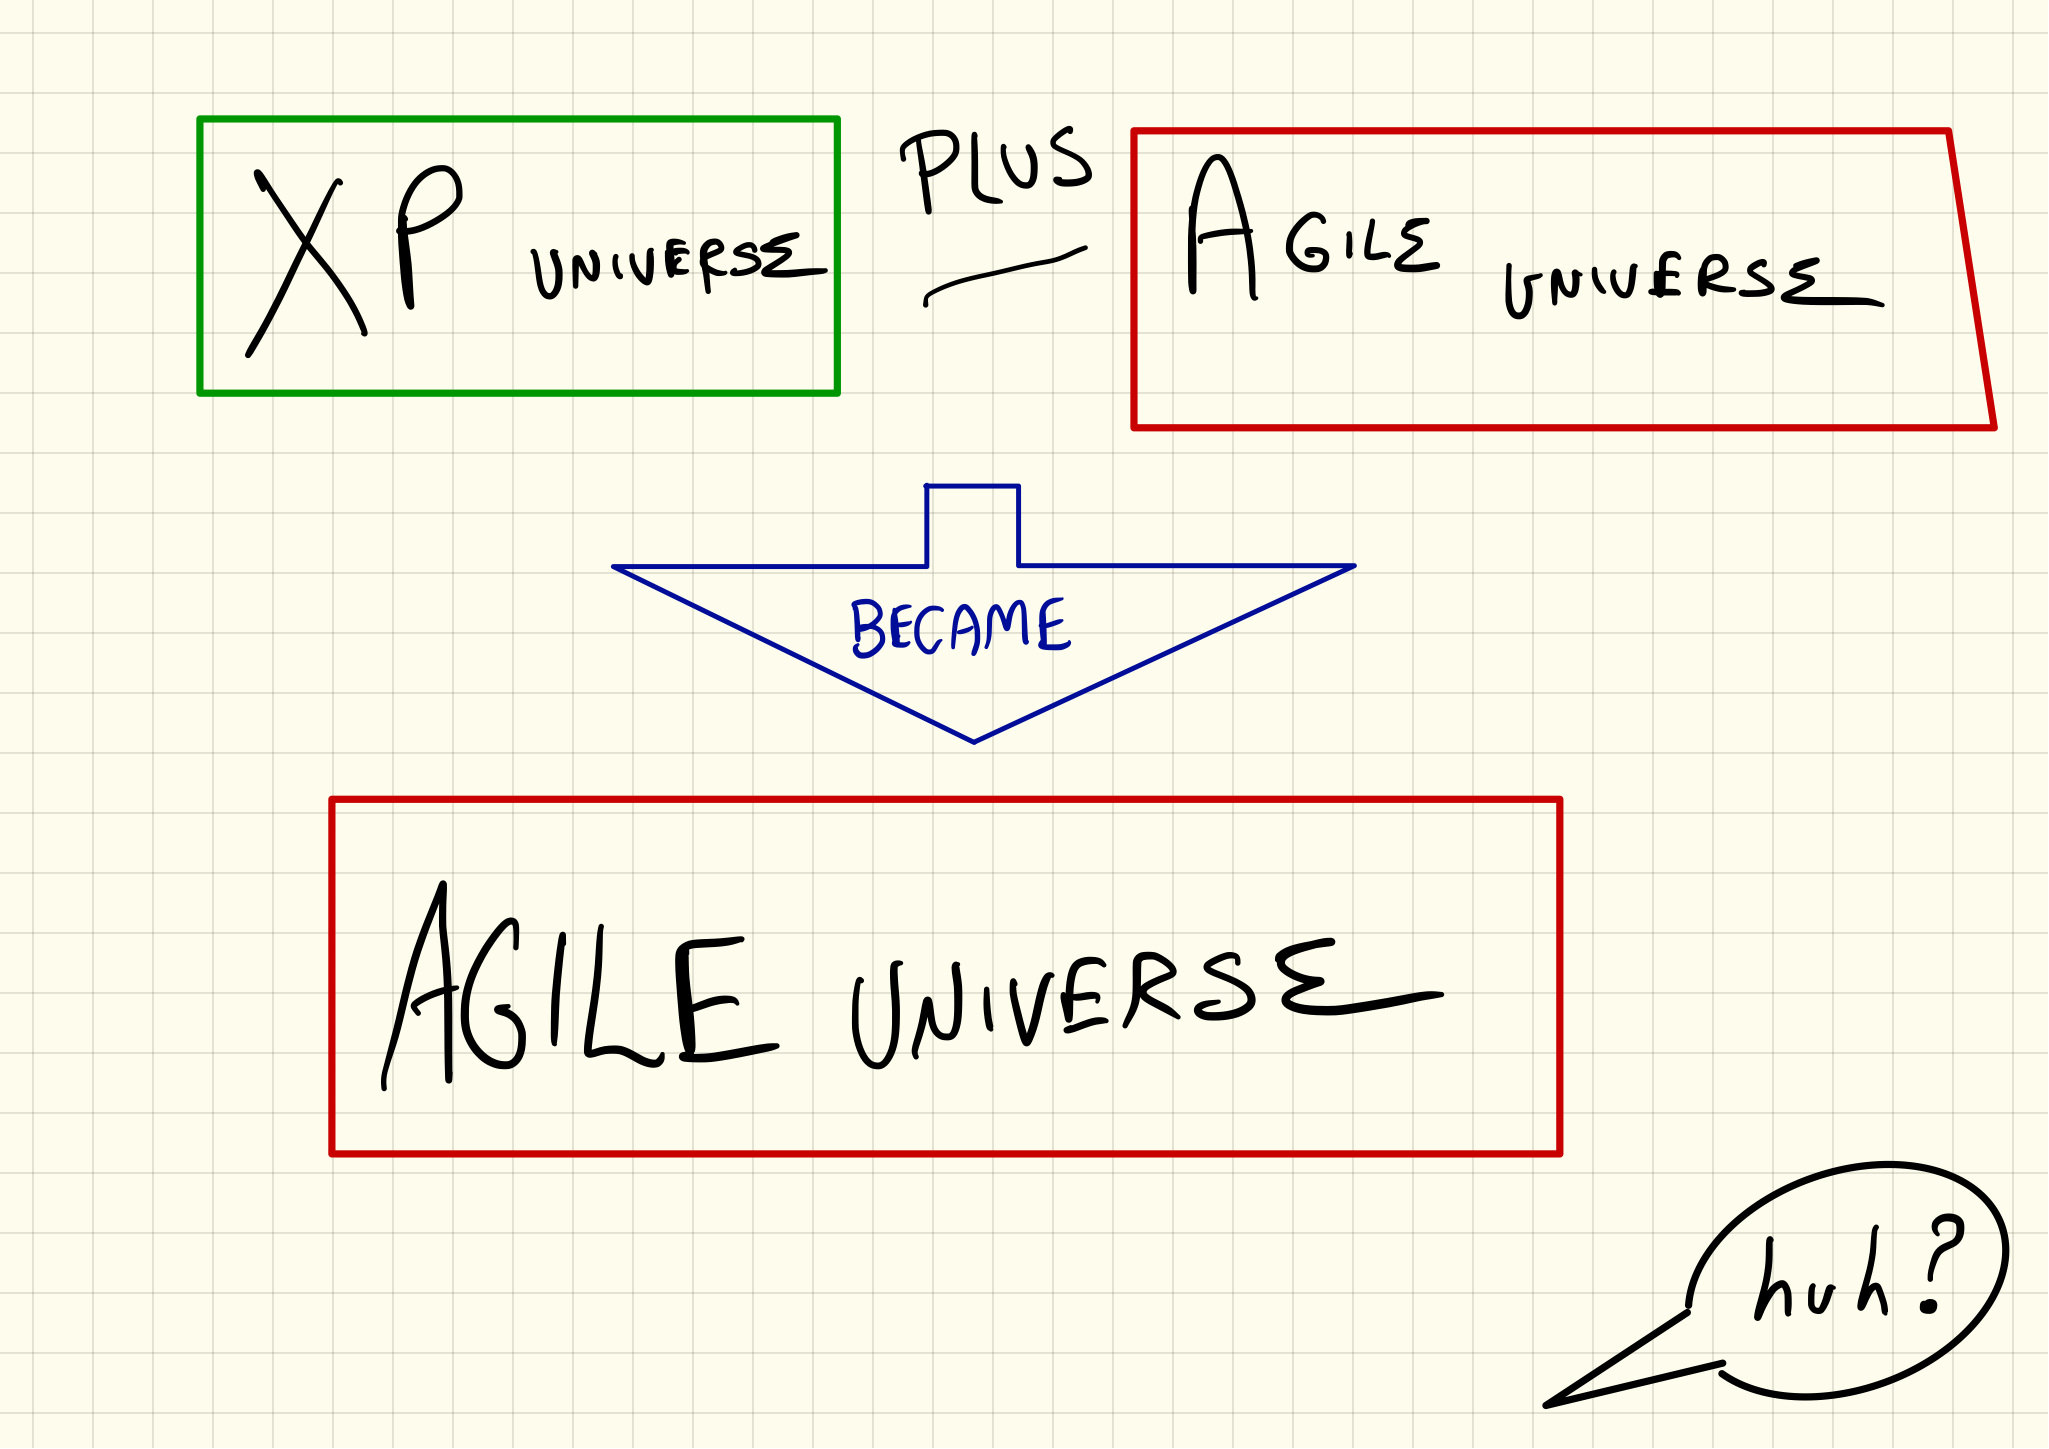 XP UNIVERSE
PLUS
AGILE UNIVERSE
BECAME
AGILE UNIVERSE
huh?